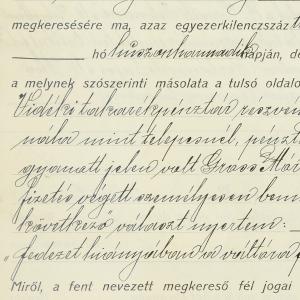 megkeresésére ma, azaz egyezerkilenczszáz
hó huszonharmadik napján, de
a melynek szószerinti másolata a tulsó oldalo
Vidéki takarékpénztár részvén
nála mint telepesnél, pénzt
gyanatt jelen volt Gross Már
fizetés végett személyesen bem
következő választ nyertem:
„fedezet hiányában a váltóra f
Miről, a fent nevezett megkereső fél jogai